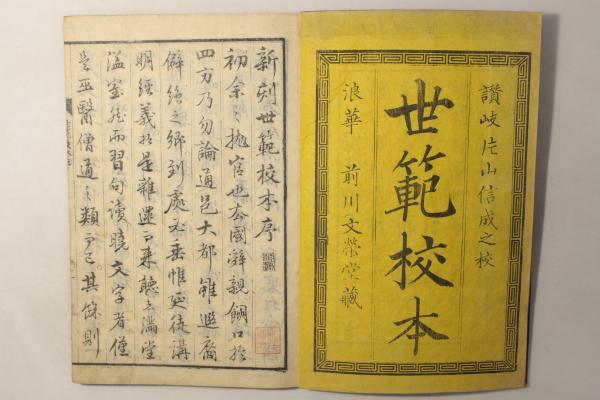 讃岐片山信成之校
世範校本
浪華　前川文榮堂藏
新刻世範校本序
初余之抛官也去國辭親餬口於
四方乃勿論通邑大都雖遐裔
僻絕之鄉到處必垂帷延徒講
明經義於是雜遝而來聽者滿堂
溢室然而習句讀曉文字者僅
是巫醫僧道之類而已其餘則